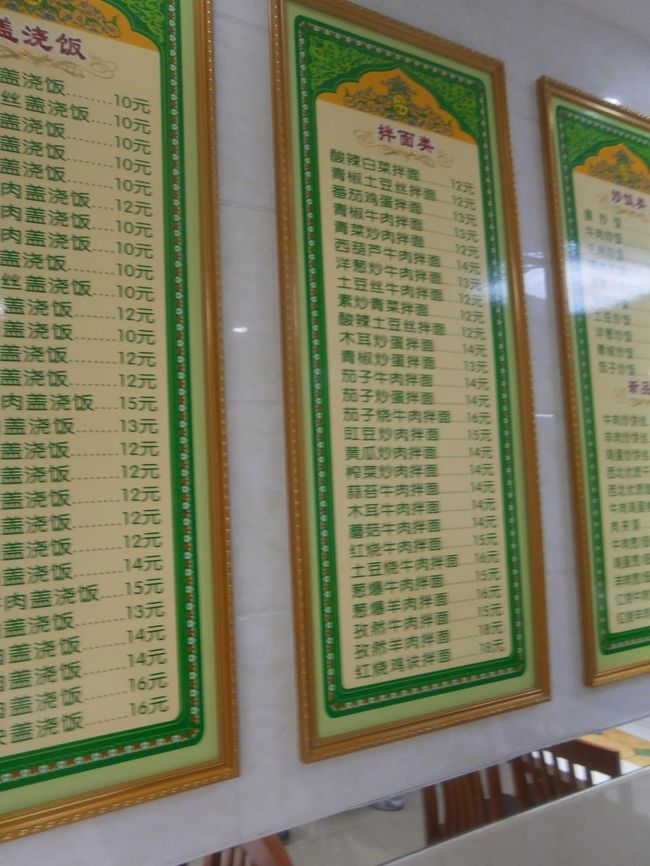 盖浇饭
盖浇饭 10元
丝盖浇饭 10元
盖浇饭 10元
盖浇饭 10元
盖浇饭 10元
肉盖浇饭 12元
肉盖浇饭 10元
肉盖浇饭 10元
盖浇饭 10元
丝盖浇饭 10元
盖浇饭 12元
盖浇饭 10元
盖浇饭 12元
盖浇饭 12元
肉盖浇饭 15元
盖浇饭 13元
盖浇饭 12元
盖浇饭 12元
盖浇饭 12元
盖浇饭 12元
盖浇饭 12元
盖浇饭 14元
牛肉盖浇饭 15元
盖浇饭 13元
肉盖浇饭 14元
肉盖浇饭 14元
肉盖浇饭 16元
块盖浇饭 16元
拌面类
酸辣白菜拌面 12元
青椒土豆丝拌面 12元
番茄鸡蛋拌面 13元
青椒牛肉拌面 13元
青菜炒肉拌面 12元
西葫芦牛肉拌面 14元
洋葱炒牛肉拌面 13元
土豆丝牛肉拌面 12元
素炒青菜拌面 12元
酸辣土豆丝拌面 12元
木耳炒蛋拌面 14元
青椒炒蛋拌面 13元
茄子牛肉拌面 14元
茄子炒蛋拌面 14元
茄子烧牛肉拌面 16元
豇豆炒肉拌面 15元
黄瓜炒肉拌面 14元
榨菜炒肉拌面 14元
蒜苔牛肉拌面 14元
木耳牛肉拌面 14元
蘑菇牛肉拌面 15元
红烧牛肉拌面 15元
土豆烧牛肉拌面 16元
葱爆牛肉拌面 15元
葱爆羊肉拌面 16元
孜然牛肉拌面 15元
孜然羊肉拌面 18元
红烧鸡块拌面 18元
炒饭类
蛋炒饭
牛肉炒饭
土豆炒饭
洋葱炒饭
青椒炒饭
茄子炒饭
牛肉炒饼丝
羊肉炒饼丝
鸡蛋炒饼丝
肉夹馍